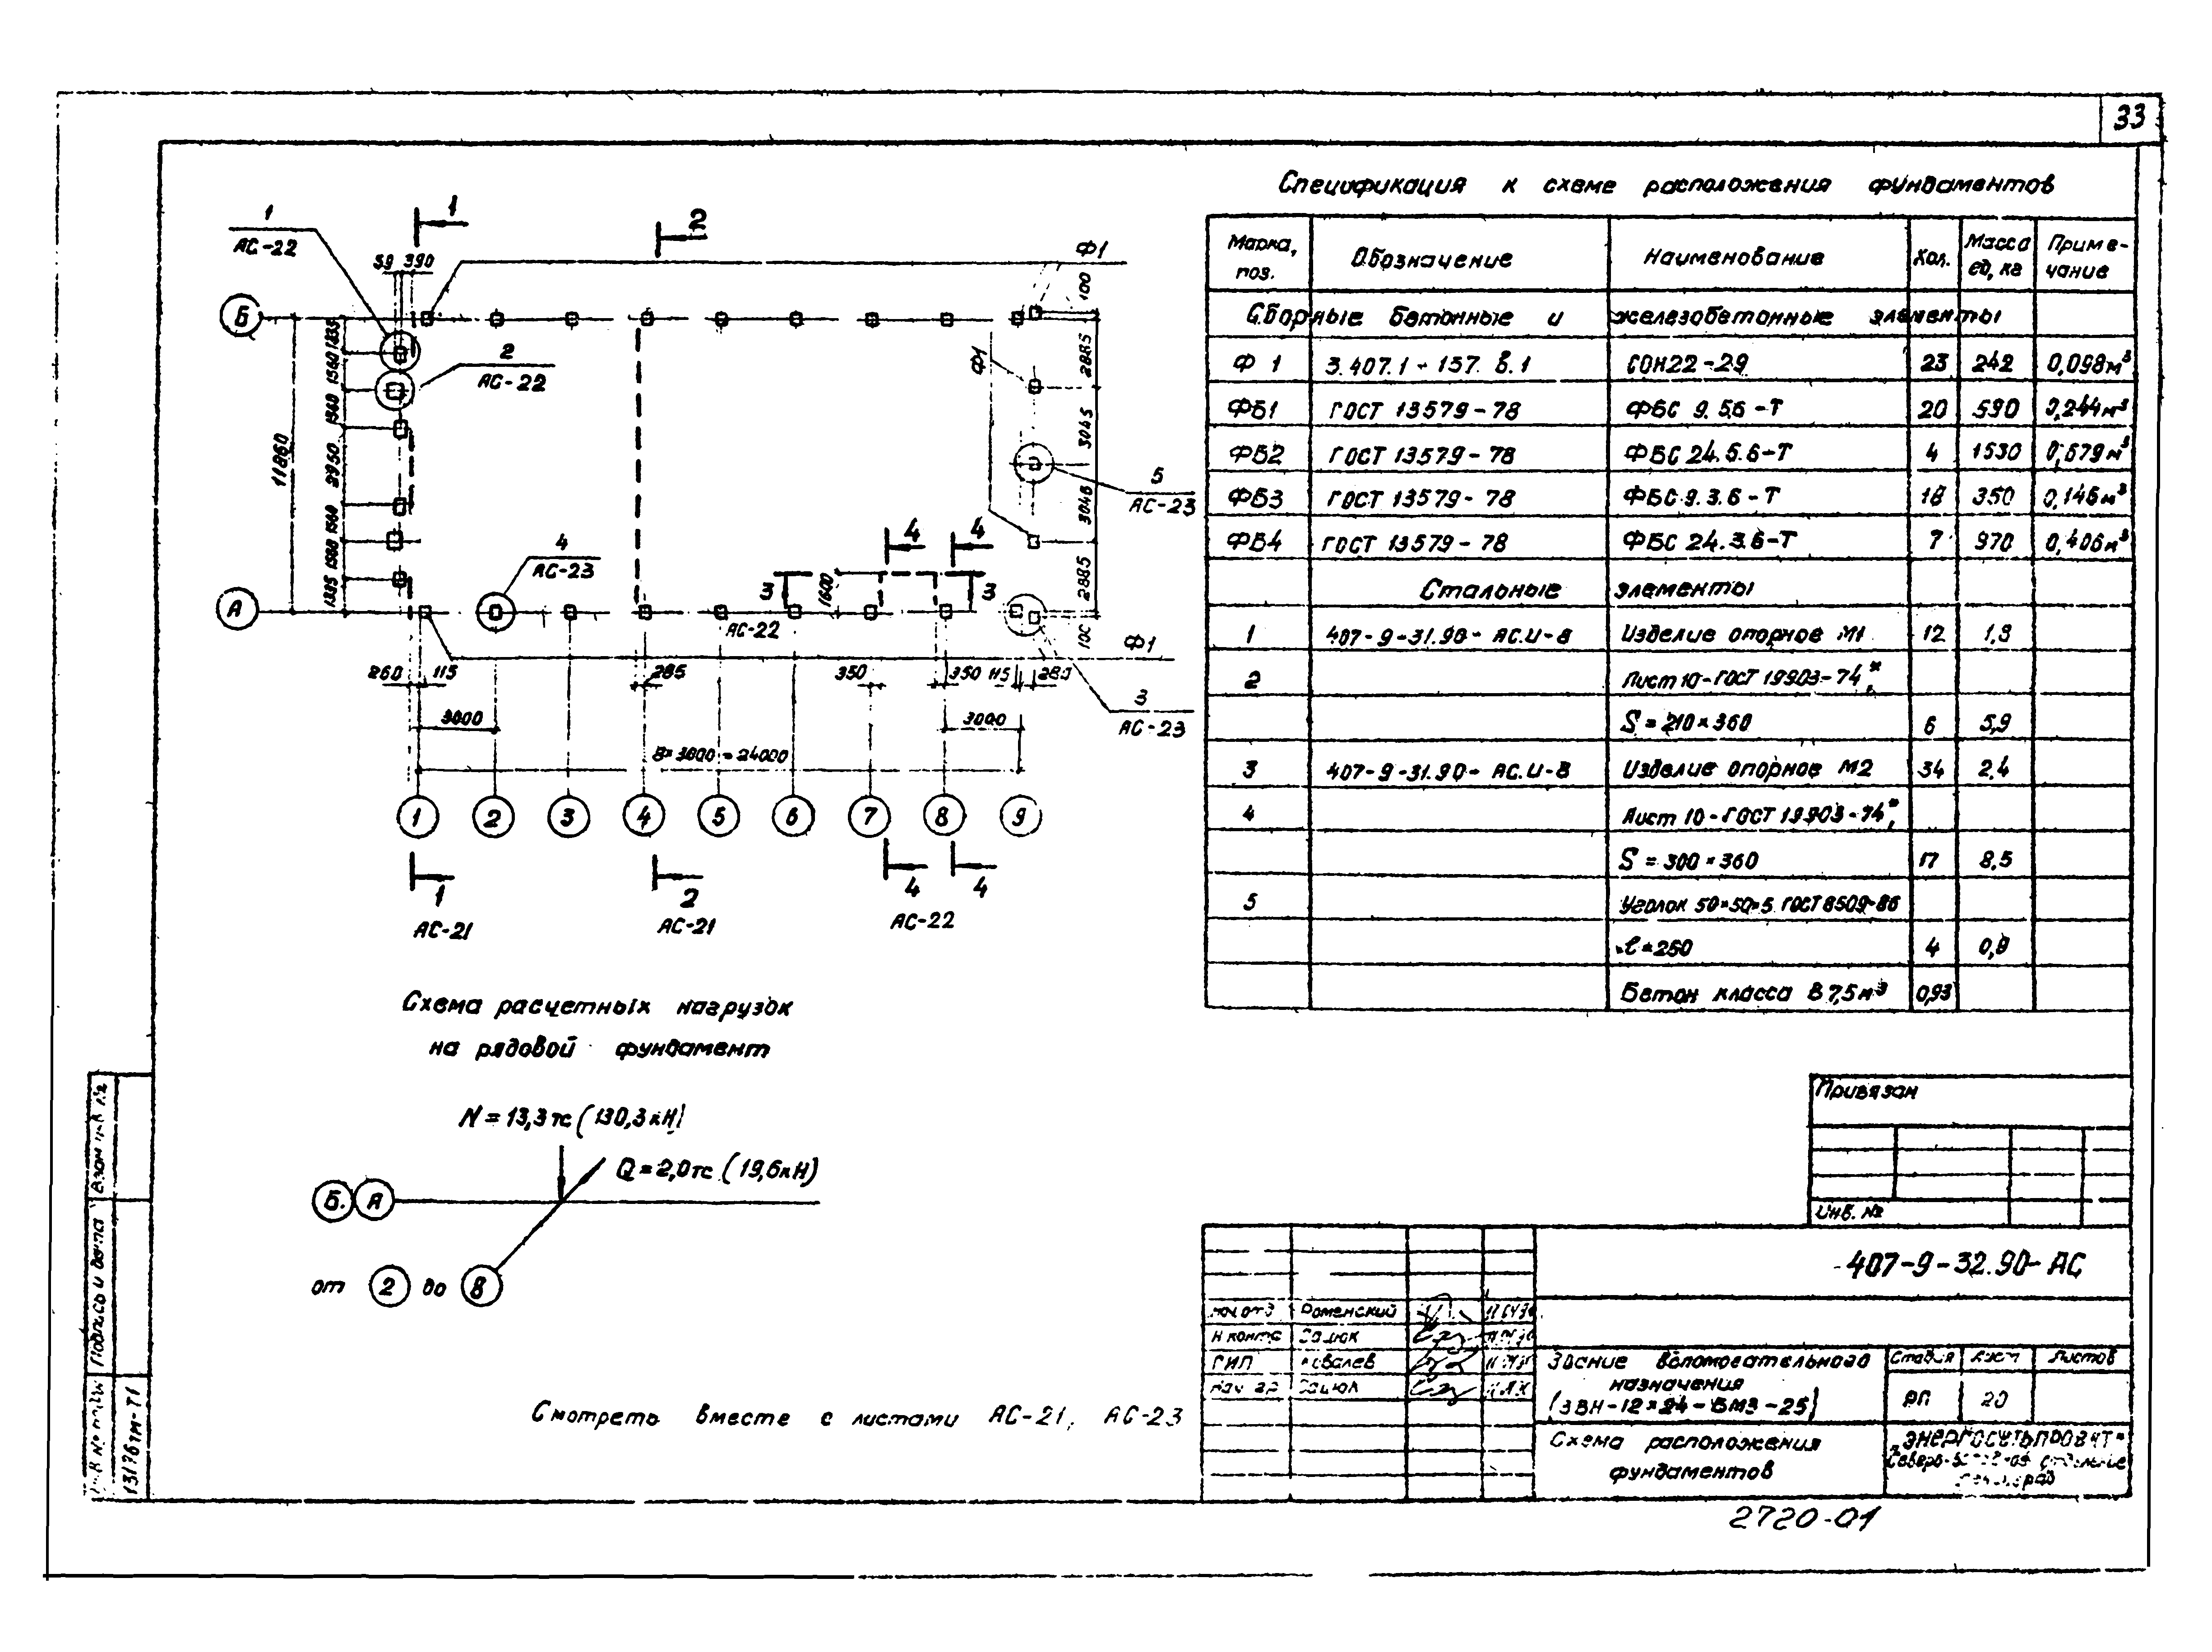 33
Спецификация к схеме расположения фундаментов
Марка, поз.
Обозначение
Наименование
Кол.
Масса ед, кг
Приме-чание
Сборные бетонные и железобетонные элементы
Ф 1 3.407.1-157. В.1 СОН22-29 23 242 0,098м³
ФБ1 ГОСТ 13579-78 ФБС 9.5.6-Т 20 590 0,244м³
ФБ2 ГОСТ 13579-78 ФБС 24.5.6-Т 4 1530 0,679м³
ФБ3 ГОСТ 13579-78 ФБС.9.3.6-Т 18 350 0,146м³
ФБ4 ГОСТ 13579-78 ФБС 24.3.6-Т 7 970 0,406м³
Стальные элементы
1 407-9-31.90- АС.И-8 Изделие опорное М1 12 1,3
2 Лист 10-ГОСТ 19903-74*,
S=210×360 6 5,9
3 407-9-31.90- АС.И-8 Изделие опорное М2 34 2,4
4 Лист 10-ГОСТ 19903-74*,
S=300×360 17 8,5
5 Уголок 50×50×5 ГОСТ 8509-86
ℓ=250 4 0,9
Бетон класса В 7,5 м³ 0,93
1
АС-22
1
2
Ф1
59 390
100
Б
2
АС-22
Ф1
1335
1560
1540
2950
1560
1500
1335
11860
2885
3045
3046
2885
100
5
АС-23
4
АС-23
4
4
3
1600
3
А
АС-22
Ф1
260
115
285
350
350
115
280
3
АС-23
3000
3000
8×3000=24000
1 2 3 4 5 6 7 8 9
1
2
4
4
АС-21
АС-21
АС-22
Схема расчетных нагрузок
на рядовой фундамент
N=13,3тс (130,3кН)
Q=2,0тс (19,6кН)
Б. А
от 2 до 8
Смотреть вместе с листами АС-21, АС-23
Привязан
Инв. №
407-9-32.90-АС
Нач отд Роменский
Н контр
ГИП Ковалев
Нач гр
Здание вспомогательного
назначения
(ЗВН-12×24-БМЗ-25)
Стадия Лист Листов
РП 20
Схема расположения
фундаментов
„ЭНЕРГОСЕТЬПРОЕКТ"
Северо-Западное отделение
Ленинград
2720-01
Взам инв №
Подпись и дата
Инв № подл
13176тм-Т1